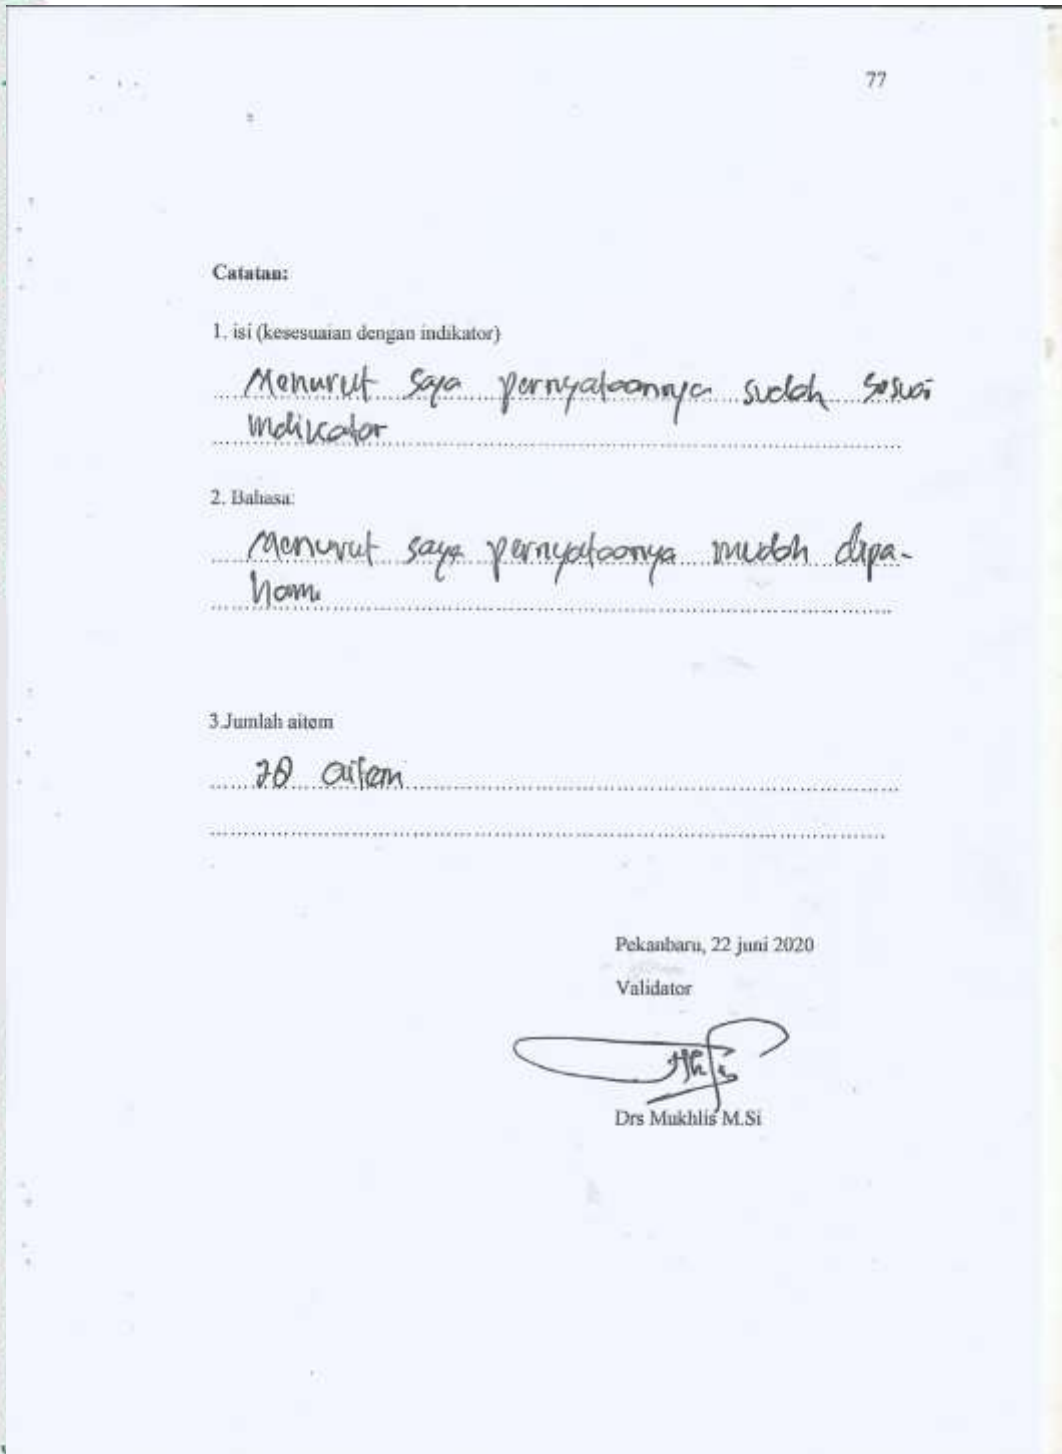 77
Catatan:
1. isi (kesesuaian dengan indikator)
Menurut saya pernyataannya sudah sesuai
indikator
2. Bahasa:
Menurut saya pernyataanya mudah dipa-
hami
3.Jumlah aitem
aitem
Pekanbaru, 22 juni 2020
Validator
Drs Mukhlis M.Si